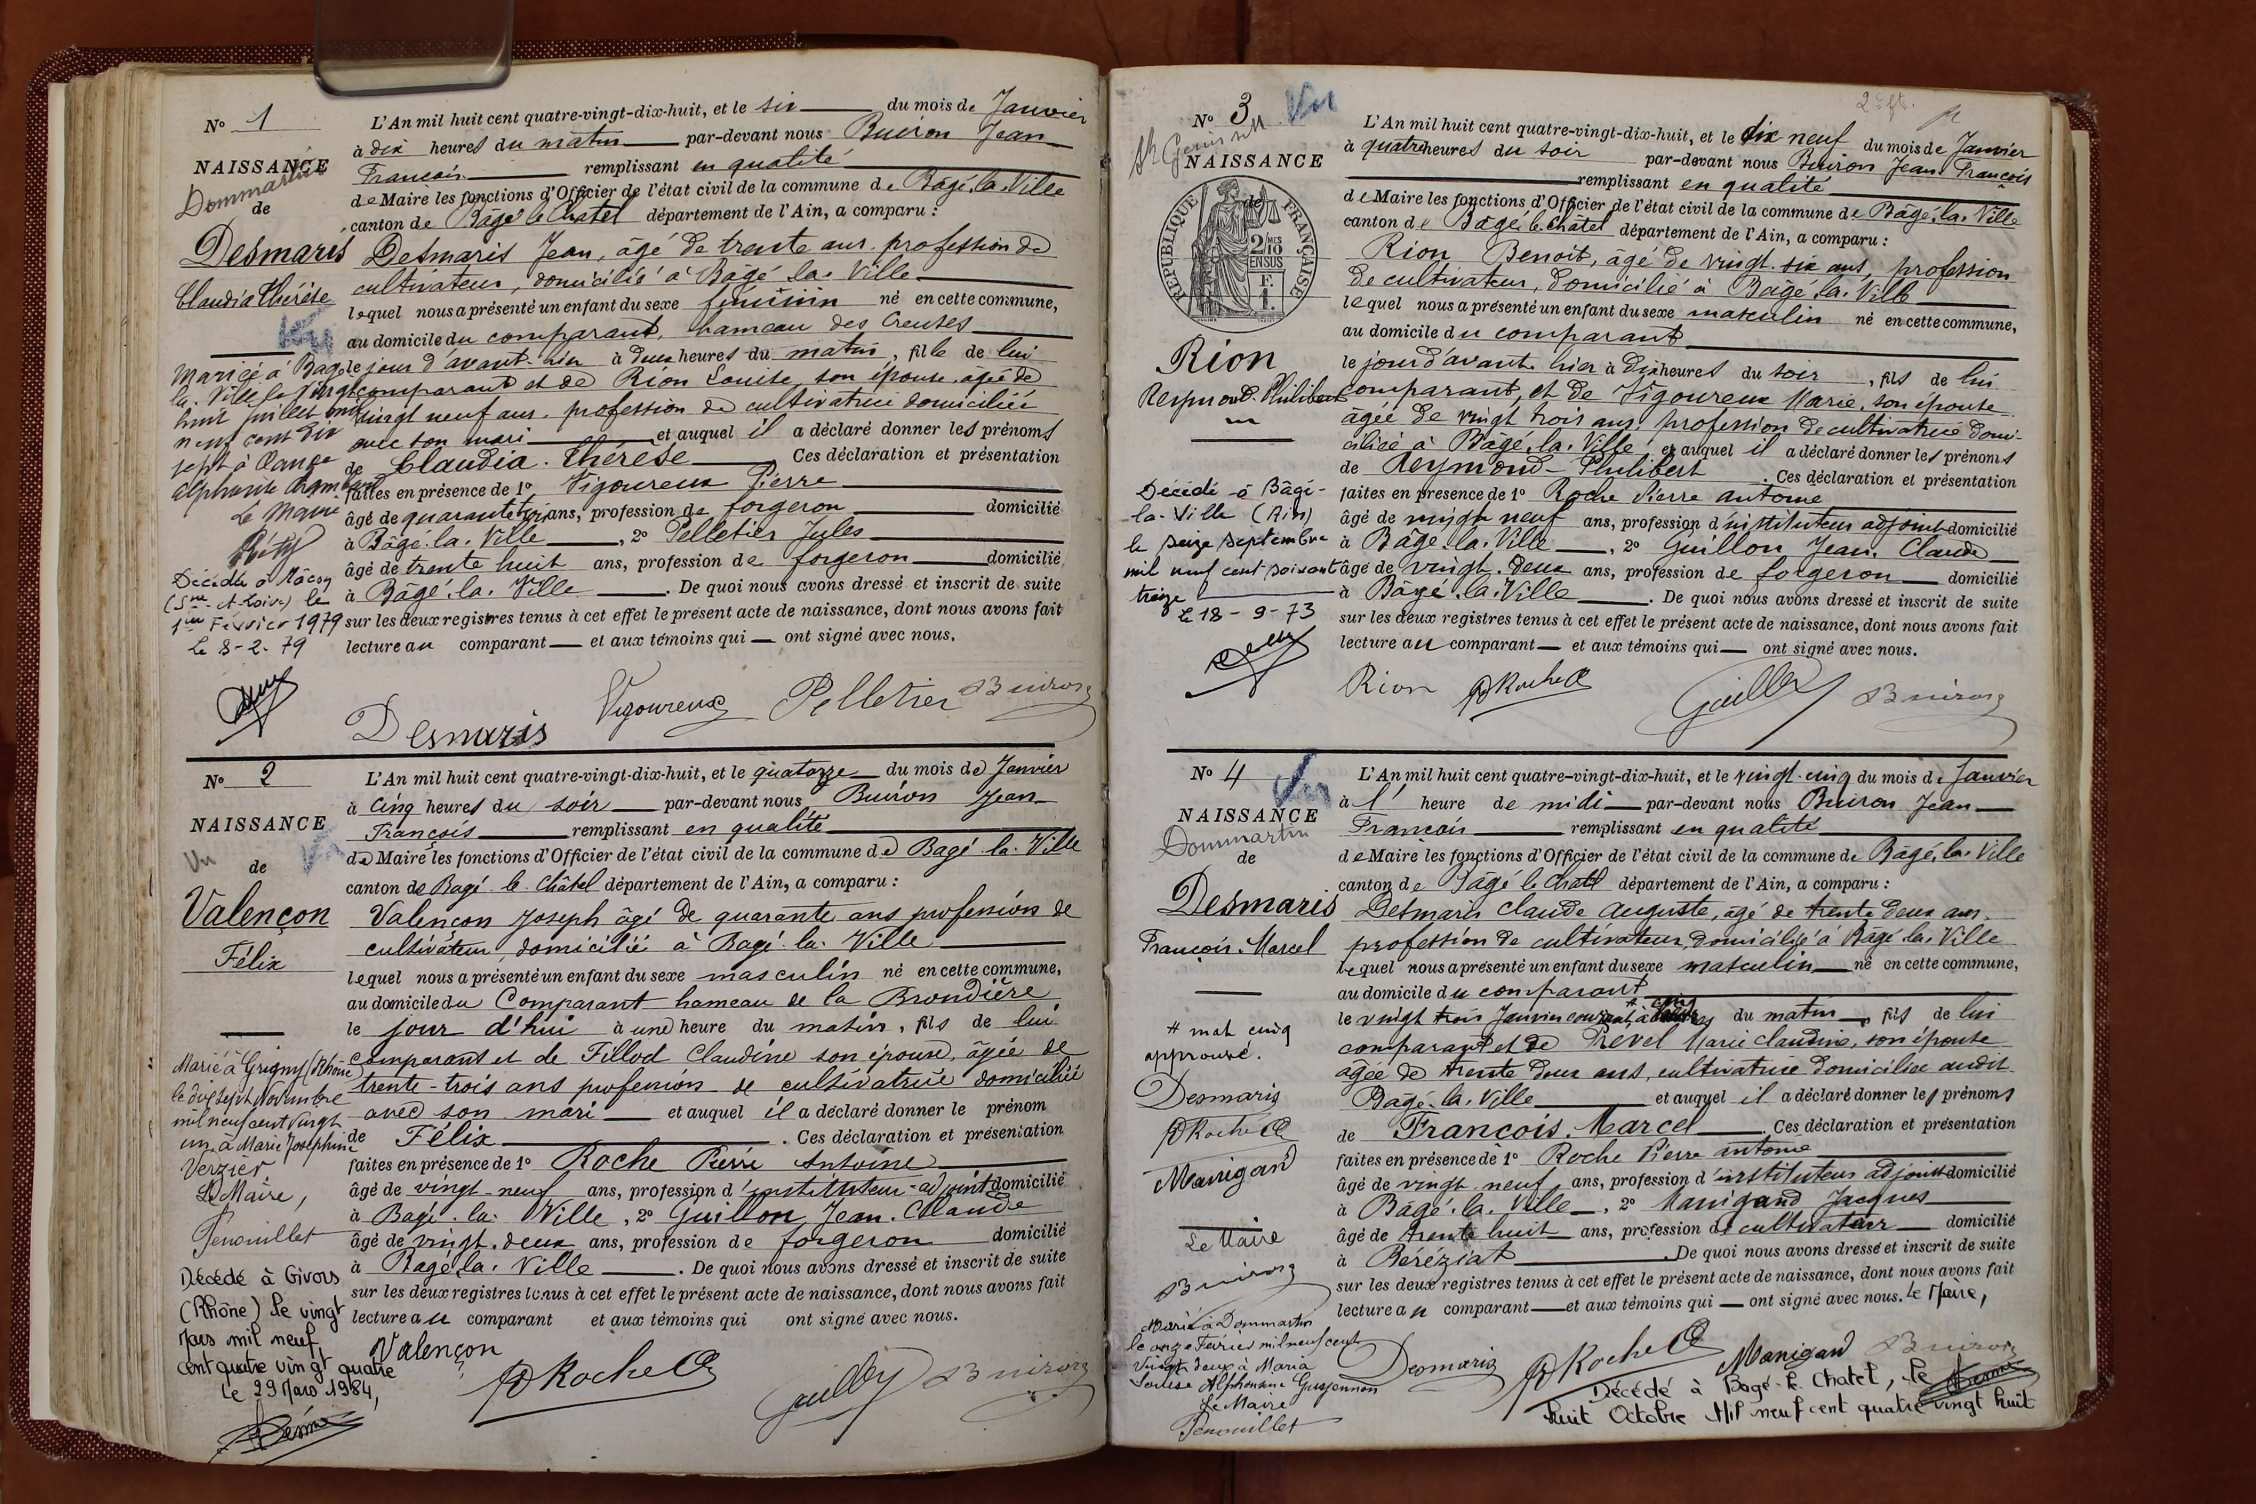 N° 1
NAISSANCE
Dommartin
de
Desmaris
Claudia Thérèse
Vu
Mariée à Bagé
la-Ville le vingt
huit juillet mil
neuf cent dix
sept à
alphonse
Le Maire
Décédée à Mâcon
(Sne-et-Loire) le
1er Février 1979
Le 8-2-79
L'An mil huit cent quatre-vingt-dix-huit, et le six du mois de Janvier
à dix heures du matin par-devant nous Buiron Jean
François remplissant en qualité
de Maire les fonctions d'Officier de l'état civil de la commune de Bâgé-la-Ville
canton de Bâgé le Chatel département de l'Ain, a comparu :
Desmaris Jean, âgé de trente ans profession de
cultivateur, domicilié à Bagé-la-Ville
lequel nous a présenté un enfant du sexe féminin né en cette commune,
au domicile du comparant, hameau des Creuses
le jour d'avant-hier à deux heures du matin, fille de lui
comparant et de Rion Louise, son épouse, âgée de
vingt neuf ans, profession de cultivatrice domiciliée
avec son mari et auquel il a déclaré donner les prénoms
de Claudia-Thérèse Ces déclaration et présentation
faites en présence de 1° Vigoureux Pierre
âgé de quarante ans, profession de forgeron domicilié
à Bâgé-la-Ville, 2° Pelletier Jules
âgé de trente huit ans, profession de forgeron domicilié
à Bâgé-la-Ville. De quoi nous avons dressé et inscrit de suite
sur les deux registres tenus à cet effet le présent acte de naissance, dont nous avons fait
lecture au comparant et aux témoins qui ont signé avec nous.
Desmaris Vigoureux Pelletier Buiron
N° 2
NAISSANCE
Vu
de
Valençon
Félix
Marié à Grigny (Rhône)
le dix sept Novembre
mil neuf cent vingt
un à Marie Joséphine
Verzier
Le Maire,
Penouillet
Décédé à Givors
(Rhône) le vingt
Mars mil neuf
cent quatre vingt quatre
Le 29 Mars 1984,
L'An mil huit cent quatre-vingt-dix-huit, et le quatorze du mois de Janvier
à cinq heures du soir par-devant nous Buiron Jean
François remplissant en qualité
de Maire les fonctions d'Officier de l'état civil de la commune de Bagé-la-Ville
canton de Bagé-le-Châtel département de l'Ain, a comparu :
Valençon Joseph âgé de quarante ans profession de
cultivateur, domicilié à Bagé-la-Ville
lequel nous a présenté un enfant du sexe masculin né en cette commune,
au domicile du Comparant hameau de la Brondière
le jour d'hui à une heure du matin, fils de lui
comparant et de Fillod Claudine son épouse, âgée de
trente-trois ans profession de cultivatrice domiciliée
avec son mari et auquel il a déclaré donner le prénom
de Félix. Ces déclaration et présentation
faites en présence de 1° Roche Pierre Antoine
âgé de vingt-neuf ans, profession d'instituteur-adjoint domicilié
à Bagé-la-Ville, 2° Guillon Jean-Claude
âgé de vingt-deux ans, profession de forgeron domicilié
à Bagé-la-Ville. De quoi nous avons dressé et inscrit de suite
sur les deux registres tenus à cet effet le présent acte de naissance, dont nous avons fait
lecture au comparant et aux témoins qui ont signé avec nous.
Valençon Roche Buiron
N° 3
Vu
NAISSANCE
de
RÉPUBLIQUE FRANÇAISE
2/10
EN SUS
Rion
Reymond-Philibert
Décédé à Bâgé-
la-Ville (Ain)
le seize septembre
mil neuf cent soixante
treize
Le 18-9-73
L'An mil huit cent quatre-vingt-dix-huit, et le dix neuf du mois de Janvier
à quatre heures du soir par-devant nous Buiron Jean François
remplissant en qualité
de Maire les fonctions d'Officier de l'état civil de la commune de Bâgé-la-Ville
canton de Bâgé-le-Châtel département de l'Ain, a comparu :
Rion Benoit, âgé de vingt-six ans, profession
de cultivateur, domicilié à Bâgé-la-Ville
lequel nous a présenté un enfant du sexe masculin né en cette commune,
au domicile du comparant
le jour d'avant-hier à dix heures du soir, fils de lui
comparant, et de Vigoureux Marie, son épouse
âgée de vingt trois ans, profession de cultivatrice domi-
ciliée à Bâgé-la-Ville et auquel il a déclaré donner les prénoms
de Reymond-Philibert. Ces déclaration et présentation
faites en présence de 1° Roche Pierre antoine
âgé de vingt neuf ans, profession d'instituteur adjoint domicilié
à Bâgé-la-Ville, 2° Guillon Jean-Claude
âgé de vingt-deux ans, profession de forgeron domicilié
à Bâgé-la-Ville. De quoi nous avons dressé et inscrit de suite
sur les deux registres tenus à cet effet le présent acte de naissance, dont nous avons fait
lecture au comparant et aux témoins qui ont signé avec nous.
Rion Roche Buiron
N° 4
Vu
NAISSANCE
Dommartin
de
Desmaris
François-Marcel
# mot cinq
approuvé.
Desmaris
Roche
Manigand
Le Maire
Buiron
Marié à Dommartin
le onze Février mil neuf cent
vingt deux à Maria
Louise Alphonsine
Le Maire
Penouillet
L'An mil huit cent quatre-vingt-dix-huit, et le vingt-cinq du mois de Janvier
à l' heure de midi par-devant nous Buiron Jean
François remplissant en qualité
de Maire les fonctions d'Officier de l'état civil de la commune de Bâgé-la-Ville
canton de Bâgé le Chatel département de l'Ain, a comparu :
Desmaris Claude Auguste, âgé de trente deux ans,
profession de cultivateur, domicilié à Bâgé-la-Ville
lequel nous a présenté un enfant du sexe masculin né en cette commune,
au domicile du comparant
le vingt trois Janvier courant, à # cinq heures du matin, fils de lui
comparant et de Prevel Marie Claudine, son épouse
âgée de trente deux ans, cultivatrice domiciliée audit
Bâgé-la-Ville et auquel il a déclaré donner les prénoms
de François-Marcel Ces déclaration et présentation
faites en présence de 1° Roche Pierre antoine
âgé de vingt neuf ans, profession d'instituteur adjoint domicilié
à Bâgé-la-Ville, 2° Manigand Jacques
âgé de trente huit ans, profession de cultivateur domicilié
à Béréziat. De quoi nous avons dressé et inscrit de suite
sur les deux registres tenus à cet effet le présent acte de naissance, dont nous avons fait
lecture au comparant et aux témoins qui ont signé avec nous. Le Maire,
Desmaris Roche Manigand Buiron
Décédé à Bagé-le-Chatel, le
huit Octobre Mil neuf cent quatre vingt huit